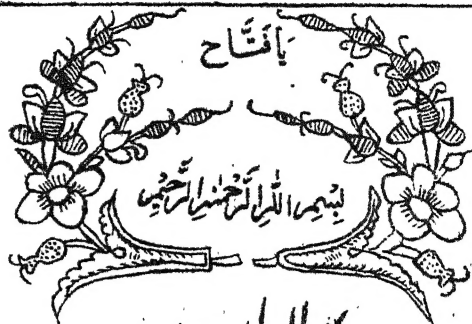 يَا فَتَّاح
بِسْمِ اللّٰهِ الرَّحْمٰنِ الرَّحِيْمِ